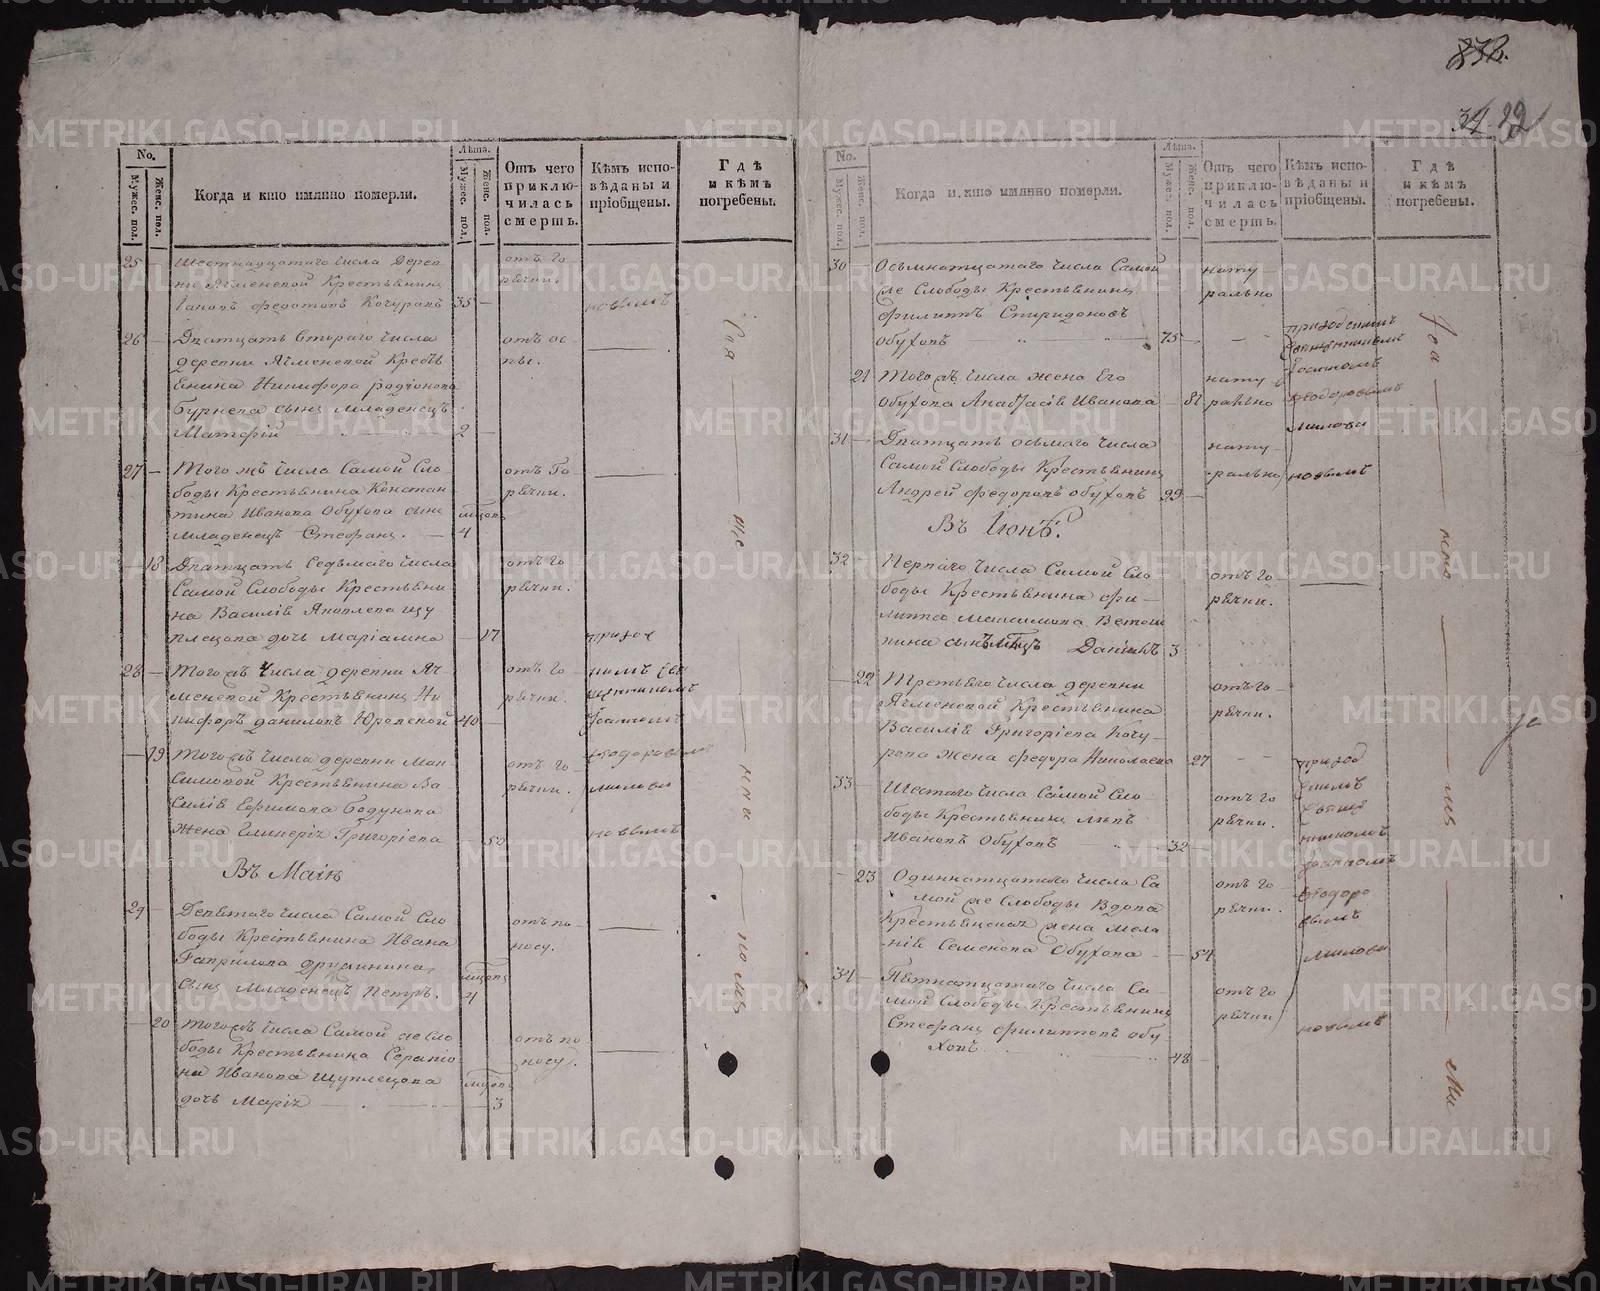 832.
34. 92
No.
Мужес. пол.
Женс. пол.
Когда и кто имянно померли.
Лѣта.
Мужес. пол.
Женс. пол.
Отъ чего
приклю-
чилась
смерть.
Кѣмъ испо-
вѣданы и
пріобщены.
Гдѣ
и кѣмъ
погребены.
25 — Шестнадцатаго числа Дерев
ни Ячменевой Крестьянинъ
Іаковъ Федотовъ Кочуровъ 35 —
отъ го
рячки.
26 — Дватцать втораго числа
деревни Ячменевой Кресть
янина Никифора родіонова
Бурнева сынъ младенецъ
Матфій 2 —
отъ ос
пы.
27 — Того жъ числа Самой Сло
боды Крестьянина Констан
тина Иванова Обухова сынъ
младенецъ Стефанъ. — 4
отъ Го
рячки.
— 18 Дватцать Седьмаго числа
Самой Слободы Крестьяни
на Василія Яковлева щу
плецова дочь Маріамна — 17
отъ го
рячки.
28 — Того жъ Числа деревни Яч
меневой Крестьянинъ Ни
кифоръ даниловъ Юревской 40 —
отъ го
рячки.
— 19 Того жъ числа деревни Мак
симовой Крестьянина Ва
силія Ефимова бодунова
Жена Гликерія Григоріева 50
отъ го
рячки.
Въ Маіѣ
29 — Девятаго числа Самой Сло
боды Крестьянина Ивана
Гаврилова дружинина
сынъ младенецъ Петръ. 4
отъ по
носу.
— 20 того жъ числа Самой же сло
боды Крестьянина Серапіо
на Иванова Щуплецова
дочь Марія 3
отъ по
носу.
No.
Мужес. пол.
Женс. пол.
Когда и кто имянно померли.
Лѣта.
Мужес. пол.
Женс. пол.
Отъ чего
приклю-
чилась
смерть.
Кѣмъ испо-
вѣданы и
пріобщены.
Гдѣ
и кѣмъ
погребены.
30 — Осьмнатцатаго числа Самой
же Слободы Крестьянинъ
филиппъ Спиридоновъ
обуховъ 75 —
нату
рально
21 Того жъ числа жена Его
Обухова Анастасія Иванова — 81
нату
рально
31 — Дватцать осьмаго числа
Самой Слободы Крестьянинъ
Андрей федоровъ обуховъ 99 —
нату
рально
Въ Іюнѣ.
32 Перваго числа Самой Сло
боды Крестьянина фи—
липпа Максимова Ветош
кина сынъ млцъ Даніилъ 3
отъ го
рячки.
— 22 Третьяго числа деревни
Ячменевой Крестьянина
Василія Григоріева Кочу—
рова жена федора Николаева 27
отъ го
рячки.
33 — Шестаго числа Самой Сло
боды Крестьянинъ
Ивановъ Обуховъ 32 —
отъ го
рячки.
— 23 Одиннатцатаго числа Са
мой же слободы вдова
Крестьянская жена Мела
нія Семенова Обухова — 54
отъ го
рячки.
34 — Пятнатцатаго числа Са—
мой Слободы Крестьянинъ
Стефанъ филипповъ обу
ховъ 48 —
отъ го
рячки
METRIKI.GASO-URAL.RU